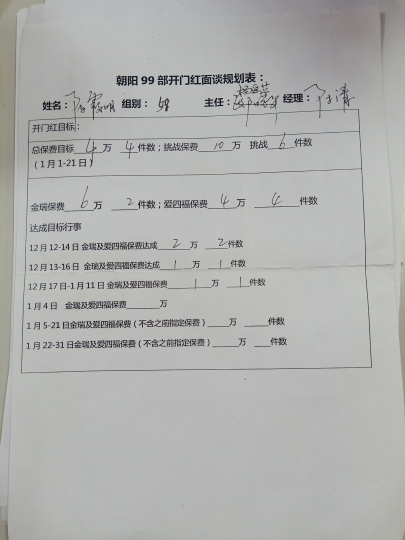 朝阳 99 部开门红面谈规划表：
姓名： 霞明 组别： 主任： 经理：
开门红目标：
总保费目标 4 万 4 件数；挑战保费 10 万 挑战 6 件数
（1 月 1-21 日）
金瑞保费 6 万 2 件数；爱四福保费 4 万 4 件数
达成目标行事
12 月 12-14 日 金瑞及爱四福保费达成 2 万 2 件数
12 月 13-16 日 金瑞及爱四福保费达成 1 万 1 件数
12 月 17 日-1 月 11 日 金瑞及爱四福保费 1 万 1 件数
1 月 4 日 金瑞及爱四福保费______万
1 月 5-21 日金瑞及爱四福保费（不含之前指定保费）______万 ____件数
1 月 22-31 日金瑞及爱四福保费（不含之前指定保费）______万 ____件数